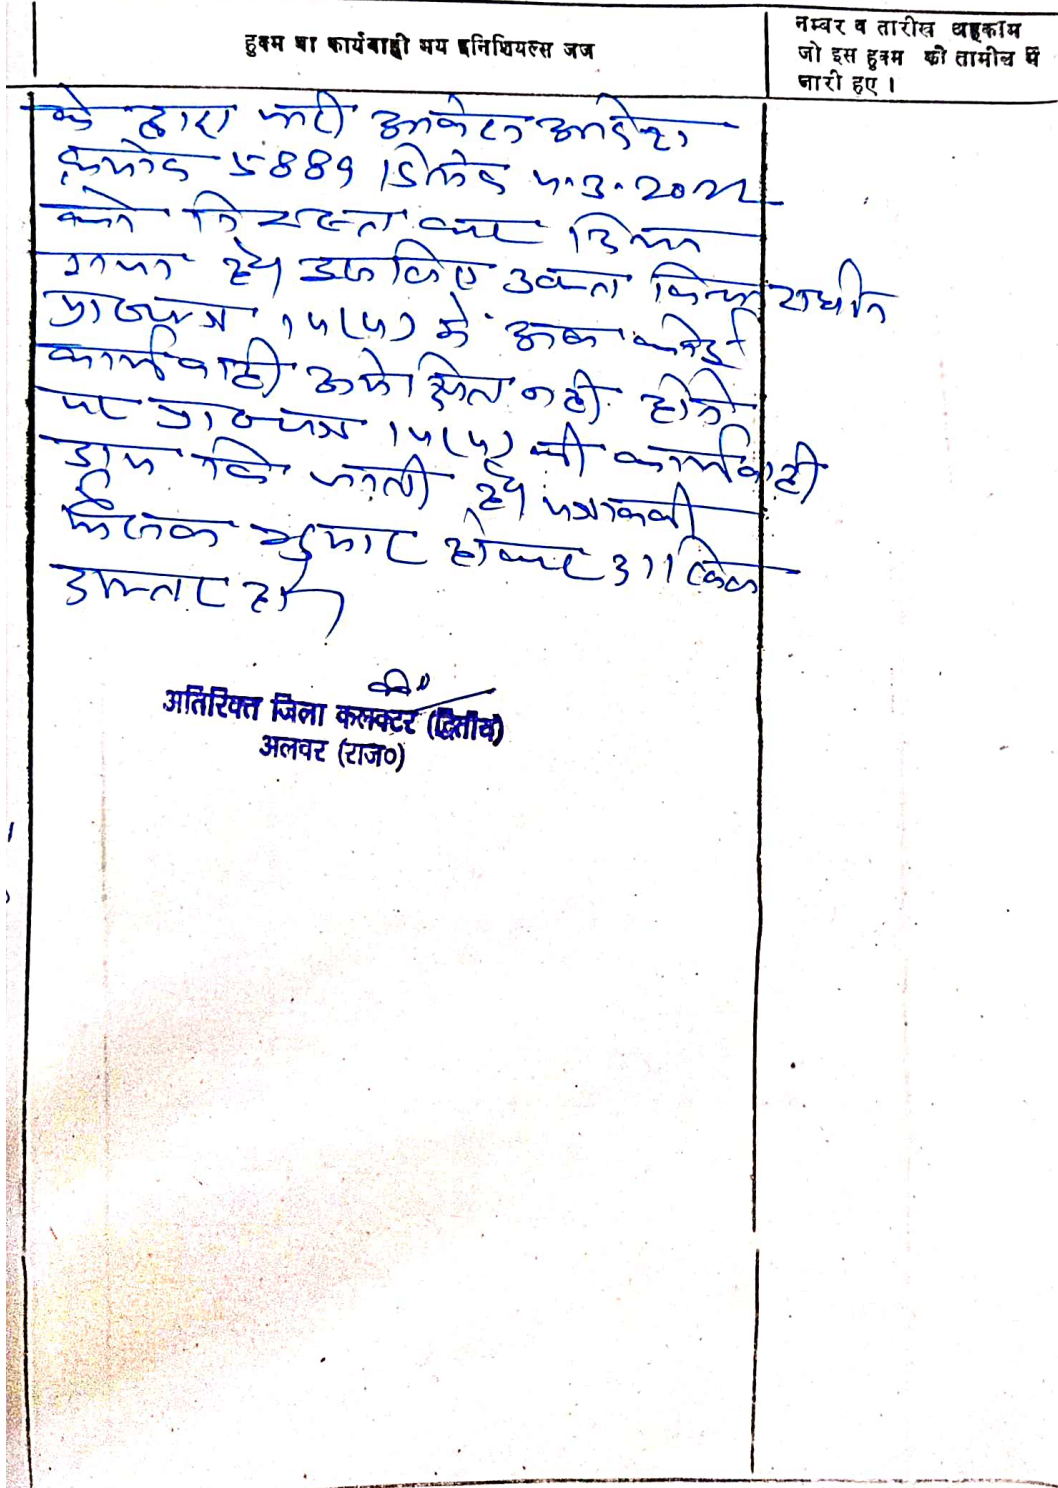 हुक्म या कार्यवाही मय इनिशियल्स जज
नम्बर व तारीख अहकाम
जो इस हुक्म की तामील में
जारी हुए ।
के द्वारा जारी आवंटन आदेश
क्रमांक 5889 दिनांक 4.3.2022
को निरस्त कर दिया
गया है। इसलिए उक्त विचाराधीन
प्रा०पत्र 14(4) में अब कोई
कार्यवाही अपेक्षित नहीं होने
पर प्रा०पत्र 14(4) की कार्यवाही
ड्रॉप कि जाती है। पत्रावली
फैसल शुमार होकर दाखिल
दफ्तर हो।
अतिरिक्त जिला कलक्टर (द्वितीय)
अलवर (राज०)